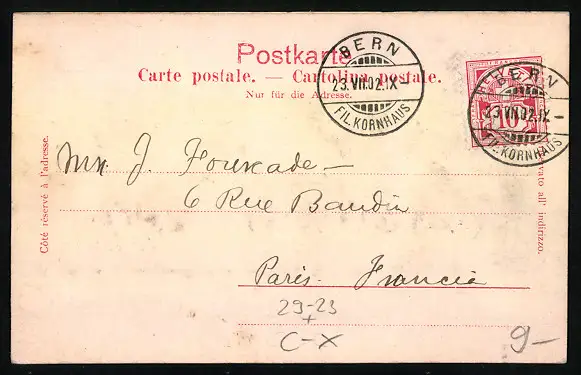 Postkarte
Carte postale. — Cartolina postale.
Nur für die Adresse.
BERN
23.VII.02.IX-
FIL.KORNHAUS
BERN
23.VII.02.IX-
FIL.KORNHAUS
10
Côté réservé à l'adresse.
Mr. J. Fourcade —
6 Rue Baudin
Paris. Francia
29-23
+
C-X
9-
all' indirizzo.